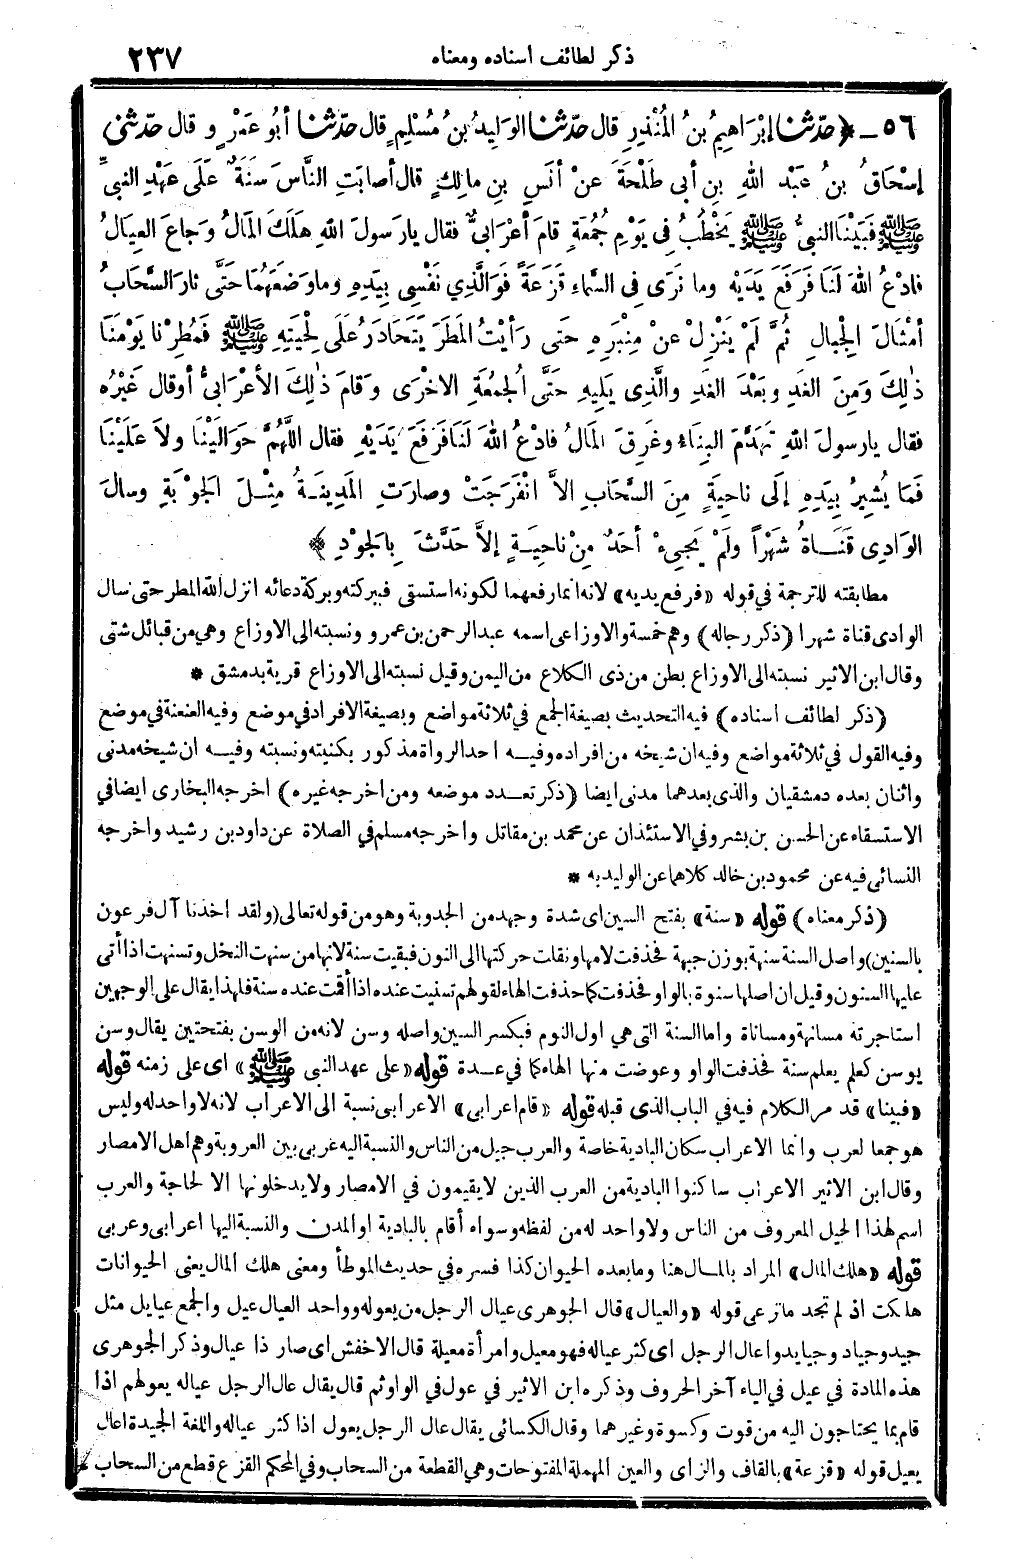 ذكر لطائف اسناده ومعناه ٢٣٧
٥٦ ـ ﴿ حَدّثنا إِبْرَاهِيمُ بنُ المُنْذِرِ قال حدّثنا الوَلِيدُ بنُ مُسْلِمٍ قال حدّثنا أبُو عَمْرٍ و قال حدّثني
إِسْحَاقُ بنُ عَبْدِ اللهِ بنِ أبى طَلْحَةَ عنْ أنَسِ بنِ مالِكٍ قال أصابَتِ النَّاسَ سَنَةٌ علَى عَهْدِ النبىِّ
ﷺ فَبَيْنَا النبيُّ ﷺ يَخْطُبُ فِى يَوْمِ جُمُعَةٍ قامَ أعْرَابىٌّ فقال يارسولَ اللهِ هلَكَ المَالُ وَجاعَ العِيَالُ
فادْعُ اللهَ لَنَا فَرَفَعَ يَدَيْهِ وما نَرَى فِى السَّماءِ قَزَعَةً فَوَالَّذِي نَفْسِى بِيَدِهِ وماوَضَعَهُمَا حَتَّى ثارَ السَّحَابُ
أمْثَالَ الجِبالِ ثُمَّ لَمْ يَنْزِلْ عنْ مِنْبَرِهِ حتَى رَأيْتُ المَطَرَ يَتَحَادَرُ عَلَى لِحْيَتِهِ ﷺ فَمُطِرْنا يَوْمَنَا
ذٰلِكَ وَمِنَ الغَدِ وبَعْدَ الغَدِ والَّذِى يَلِيهِ حَتَّى الجمُعَةِ الاخْرَى وَقامَ ذٰلِكَ الأعْرَابىُّ أوقال غَيْرُه
فقال يارسولَ اللهِ تَهَدَّمَ البِنَاءُ وغَرِقَ المَالُ فادْعُ اللهَ لَنَا فَرَفَعَ يَدَيْهِ فقال اللَّهُمَّ حَوَالَيْنَا ولاَ عَلَيْنَا
فَمَا يُشِيرُ بِيَدِهِ إلَى ناحِيَةٍ مِنَ السَّحَابِ الاَّ انْفَرَجَتْ وصارَتِ المَدِينَةُ مِثْلَ الجَوْبَةِ وسالَ
الوَادِى قَنَاةُ شَهْرًا ولَمْ يَجِىءْ أحَدٌ مِنْ ناحِيَةٍ إلاَّ حَدَّثَ بِالجَوْدِ ﴾
مطابقته للترجمة في قوله «فرفع يديه» لانه انما رفعهما لكونه استسقى فببركته وبركة دعائه انزل الله المطر حتى سال
الوادى قناة شهرا (ذكر رجاله) وهم خمسة والاوزاعى اسمه عبد الرحمن بن عمرو ونسبته الى الاوزاع وهي من قبائل شتى
وقال ابن الاثير نسبته الى الاوزاع بطن من ذى الكلاع من اليمن وقيل نسبته الى الاوزاع قرية بدمشق *
(ذكر لطائف اسناده) فيه التحديث بصيغة الجمع في ثلاثة مواضع وبصيغة الافراد في موضع وفيه العنعنة في موضع
وفيه القول في ثلاثة مواضع وفيه ان شيخه من افراده وفيه احد الرواة مذكور بكنيته ونسبته وفيه ان شيخه مدنى
واثنان بعده دمشقيان والذى بعدهما مدنى ايضا (ذكر تعدد موضعه ومن اخرجه غيره) اخرجه البخارى ايضا في
الاستسقاء عن الحسن بن بشر وفي الاستئذان عن محمد بن مقاتل واخرجه مسلم في الصلاة عن داود بن رشيد واخرجه
النسائى فيه عن محمود بن خالد كلاهما عن الوليد به *
(ذكر معناه) قوله «سنة» بفتح السين اى شدة وجهد من الجدوبة وهو من قوله تعالى (ولقد اخذنا آل فرعون
بالسنين) واصل السنة سنهة بوزن جبهة فحذفت لامها ونقلت حركتها الى النون فبقيت سنة لانها من سنهت النخل وتسنهت اذا أتى
عليها السنون وقيل ان اصلها سنوة بالواو فحذفت كما حذفت الهاء لقولهم تسنيت عنده اذا أقمت عنده سنة فلهذا يقال على الوجهين
استاجرته مسانهة ومساناة واما السنة التى هي اول النوم فبكسر السين واصله وسن لانه من الوسن بفتحتين يقال وسن
يوسن كعلم يعلم سنة فحذفت الواو وعوضت منها الهاء كما في عدة قوله «على عهد النبى ﷺ» اى على زمنه قوله
«فبينا» قد مر الكلام فيه في الباب الذى قبله قوله «قام اعرابى» الاعرابى نسبة الى الاعراب لانه لا واحد له وليس
هو جمعا لعرب وانما الاعراب سكان البادية خاصة والعرب جيل من الناس والنسبة اليه عربى بين العروبة وهم اهل الامصار
وقال ابن الاثير الاعراب ساكنوا البادية من العرب الذين لا يقيمون في الامصار ولا يدخلونها الا لحاجة والعرب
اسم لهذا الجيل المعروف من الناس ولا واحد له من لفظه وسواء أقام بالبادية او المدن والنسبة اليها اعرابى وعربى
قوله «هلك المال» المراد بالمال هنا وما بعده الحيوان كذا فسره في حديث الموطأ ومعنى هلك المال يعنى الحيوانات
هلكت اذ لم تجد ما ترعى قوله «والعيال» قال الجوهرى عيال الرجل من يعوله وواحد العيال عيل والجمع عيايل مثل
جيد وجياد وجيايد واعال الرجل اى كثر عياله فهو معيل وامرأة معيلة قال الاخفش اى صار ذا عيال وذكر الجوهرى
هذه المادة في عيل في الياء آخر الحروف وذكره ابن الاثير في عول في الواو ثم قال يقال عال الرجل عياله يعولهم اذا
قام بما يحتاجون اليه من قوت وكسوة وغيرهما وقال الكسائى يقال عال الرجل يعول اذا كثر عياله واللغة الجيدة اعال
يعيل قوله «قزعة» بالقاف والزاى والعين المهملة المفتوحات وهي القطعة من السحاب وفي المحكم القزع قطع من السحاب